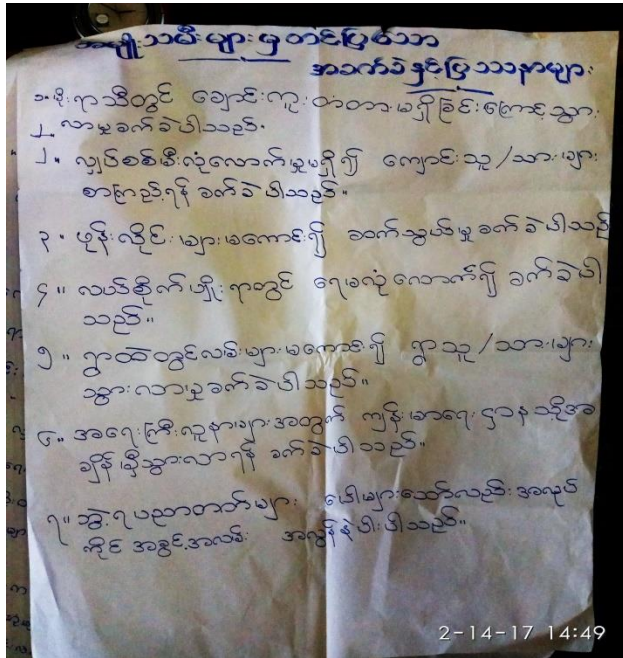 အမျိုးသမီးများမှတင်ပြသော
အခက်ခဲနှင့်ပြဿနာများ
၁။ မိုးရာသီတွင် ချောင်းကူးတံတားမရှိခြင်းကြောင့်သွား
လာမှုခက်ခဲပါသည်။
၂။ လျှပ်စစ်မီးလုံလောက်မှုမရှိ၍ ကျောင်းသူ/သားများ
စာကြည့်ရန် ခက်ခဲပါသည်။
၃။ ဖုန်းလိုင်းများမကောင်း၍ ဆက်သွယ်မှုခက်ခဲပါသည်
၄။ လယ်စိုက်ပျိုးရာတွင် ရေမလုံလောက်၍ ခက်ခဲပါ
သည်။
၅။ ရွာထဲတွင်လမ်းများမကောင်း၍ ရွာသူ/သားများ
သွားလာမှုခက်ခဲပါသည်။
၆။ အရေးကြီးလူနာများအတွက် ကျန်းမာရေးဌာနသို့အ
ချိန်မှီသွားလာရန် ခက်ခဲပါသည်။
၇။ ဘွဲ့ရပညာတတ်များ ပေါများသော်လည်းအလုပ်
ကိုင် အခွင့်အလမ်း အလွန်နဲပါးပါသည်။
2-14-17 14:49